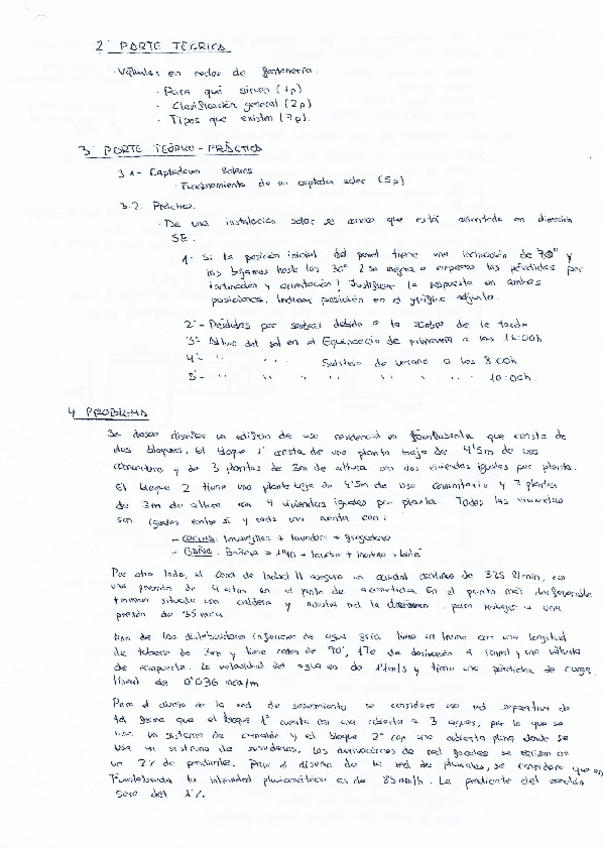 2. PARTE TEÓRICA
- Válvulas en redes de fontanería.
- Para qué sirven (1p)
- Clasificación general (2p)
- Tipos que existen (7p).
3. PARTE TEÓRICO - PRÁCTICA
3.1- Captadores solares
- Funcionamiento de un captador solar (5p)
3.2. Práctica.
- De una instalación solar se conoce que está orientada en dirección
SE.
1- Si la posición inicial del panel tiene una inclinación de 70° y
los bajamos hasta los 30° ¿Se mejora o empeora las pérdidas por
inclinación y orientación? Justifique la respuesta en ambas
posiciones. Indicar posición en el gráfico adjunto.
2- Pérdidas por sombras debido a la
3- Altura del sol en el Equinoccio de primavera a las
4- " " " Solsticio de verano a las 8:00h
5- " " " " " " " 10:00h.
4 PROBLEMA
Se desea diseñar un edificio de uso residencial en que consta de
dos bloques. El bloque 1 consta de una planta baja de 4'5m de uso
comunitario y de 3 plantas de 3m de altura con dos viviendas iguales por planta.
El bloque 2 tiene una planta baja de 4'5m de uso comunitario y 7 plantas
de 3m de altura con 4 viviendas iguales por planta. Todas las viviendas
son iguales entre si y cada una cuenta con:
- COCINA: lavavajillas + lavadora + fregadero
- BAÑO: Bañera > 1'40 + lavabo + inodoro + bidé
Por otro lado, el Canal de Isabel II asegura un caudal continuo de 325 l/min, con
una presión de 4 atm en el punto de acometida. En el punto más desfavorable
tenemos situada una caldera y para trabajar a una
presión de
Uno de los distribuidores inferiores de agua fría tiene un tramo con una longitud
de tubería de 3m y tiene codos de 90°, de derivación a ramal y una válvula
de compuerta. La velocidad del agua es de 1'4m/s y tiene una pérdida de carga
lineal de 0'036 mca/m
Para el diseño de la red de saneamiento se considera una red separativa de
tal forma que el bloque 1° cuenta con una cubierta a 3 aguas, por lo que se
usa un sistema de canalón y el bloque 2° con una cubierta plana donde se
usa un sistema de sumideros. Las derivaciones de red grises se estiman en
un 2% de pendiente. Para el diseño de la red de pluviales, se considera que en
Fuenlabrada la intensidad pluviométrica es de 85mm/h. La pendiente del canalón
será del 1%.